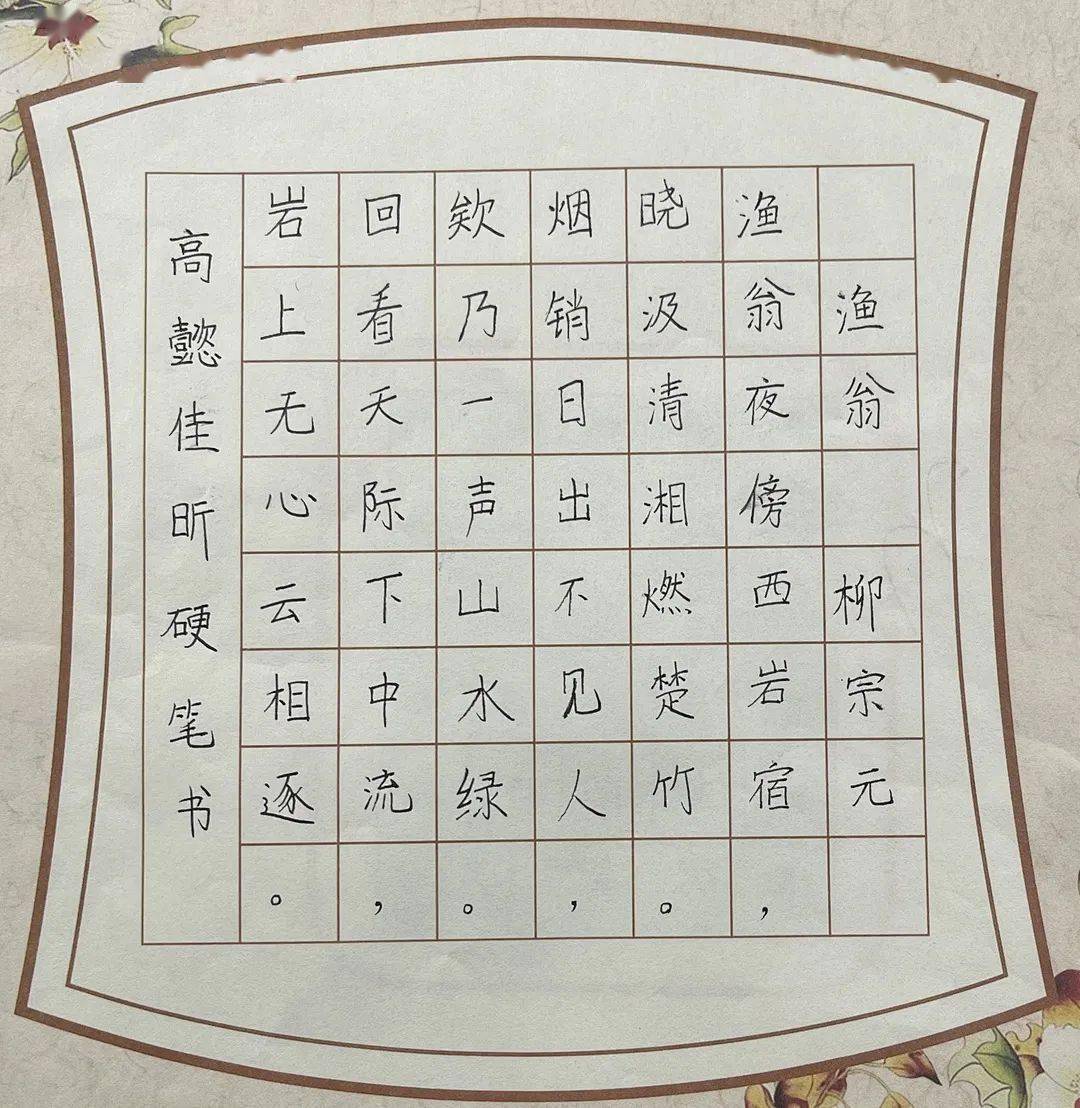 渔翁 柳宗元
渔翁夜傍西岩宿，
晓汲清湘燃楚竹。
烟销日出不见人，
欸乃一声山水绿。
回看天际下中流，
岩上无心云相逐。
高懿佳昕硬笔书